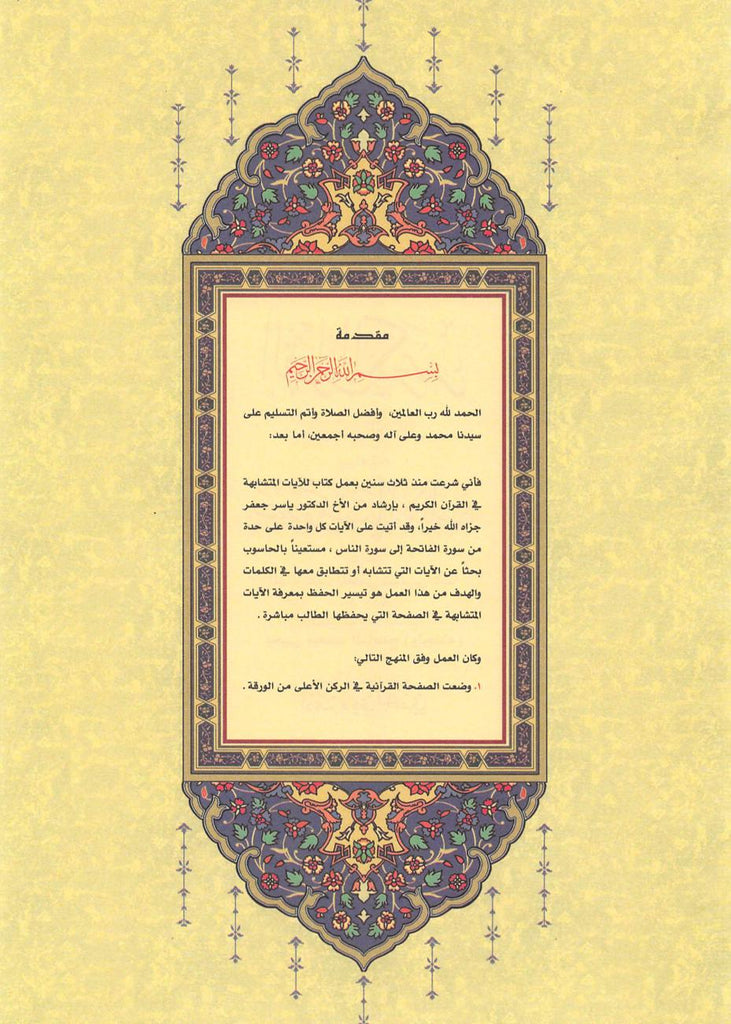 مقدمة
بسم الله الرحمن الرحيم
الحمد لله رب العالمين، وأفضل الصلاة وأتم التسليم على
سيدنا محمد وعلى آله وصحبه أجمعين، أما بعد:
فأني شرعت منذ ثلاث سنين بعمل كتاب للآيات المتشابهة
في القرآن الكريم ، بإرشاد من الأخ الدكتور ياسر جعفر
جزاه الله خيراً، وقد أتيت على الآيات كل واحدة على حدة
من سورة الفاتحة إلى سورة الناس ، مستعيناً بالحاسوب
بحثاً عن الآيات التي تتشابه أو تتطابق معها في الكلمات
والهدف من هذا العمل هو تيسير الحفظ بمعرفة الآيات
المتشابهة في الصفحة التي يحفظها الطالب مباشرة .
وكان العمل وفق المنهج التالي:
١. وضعت الصفحة القرآنية في الركن الأعلى من الورقة .